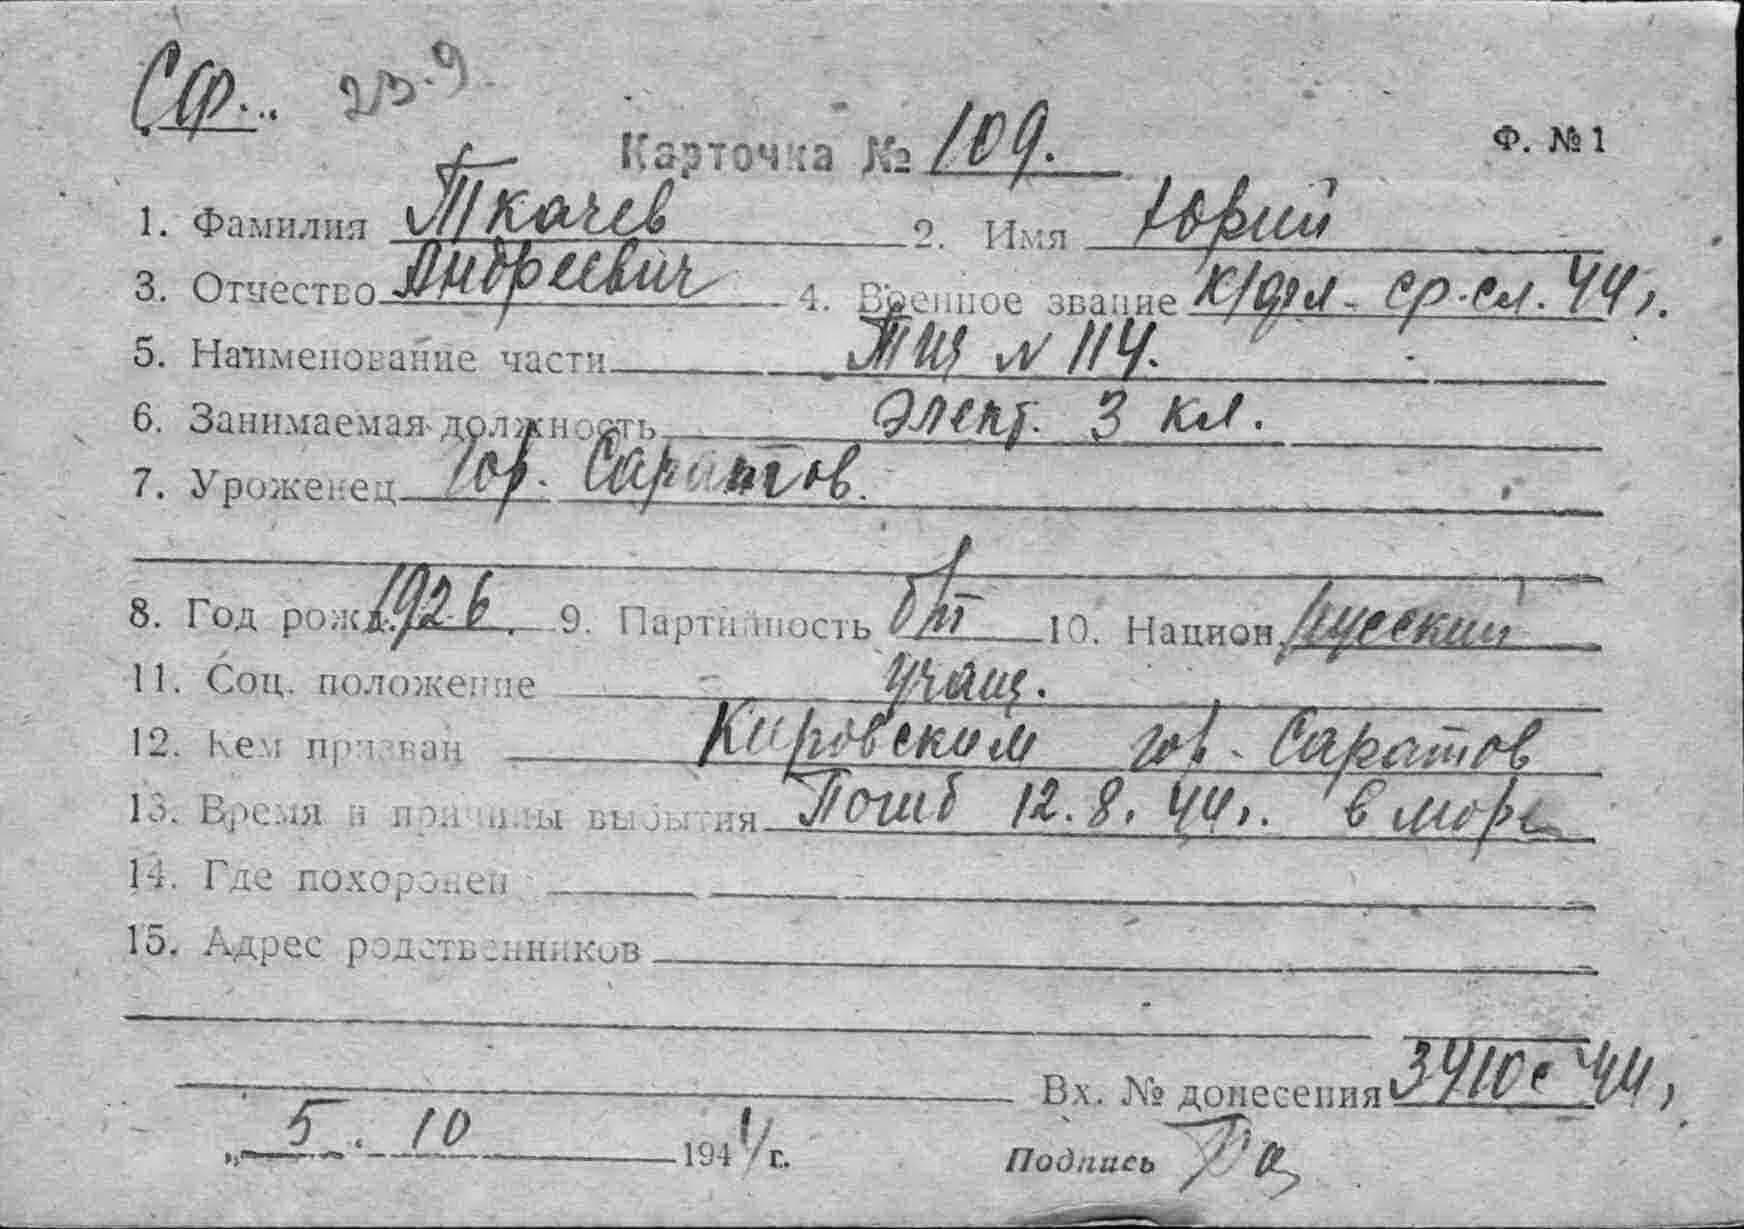 СФ... 23.9.
Карточка № 109. Ф. № 1
1. Фамилия Ткачев 2. Имя Юрий
3. Отчество Андреевич 4. Военное звание к/фл. ср.сл. 44 г.
5. Наименование части ТЩ N 114.
6. Занимаемая должность Элект. 3 кл.
7. Уроженец гор. Саратов.
8. Год рожд. 1926. 9. Партийность б/п 10. Национ. русский
11. Соц. положение учащ.
12. Кем призван Кировским гор. Саратов
13. Время и причины выбытия Погиб 12.8.44 г. в море
14. Где похоронен
15. Адрес родственников
Вх. № донесения 3410с 44 г.
„ 5. 10 1944 г. Подпись